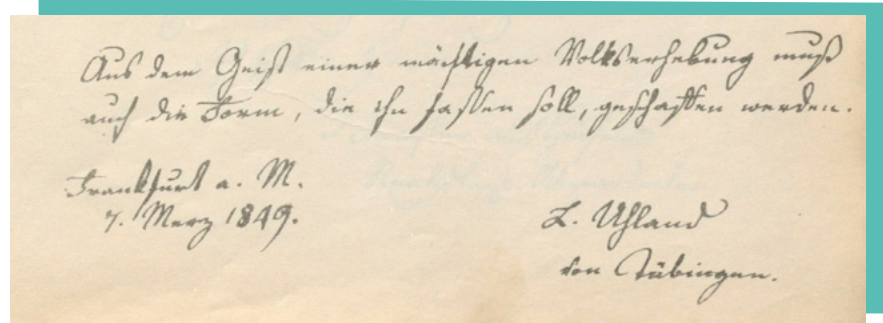 Aus dem Geist einer mächtigen Volkserhebung muß
auch die Form, die ihn fassen soll, geschaffen werden.
Frankfurt a. M.
7. Merz 1849.
L. Uhland
von Tübingen.